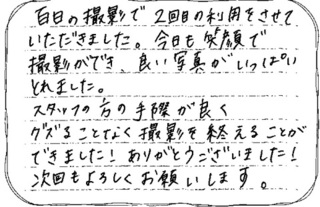 百日の撮影で2回目の利用をさせて
いただきました。今日も笑顔で
撮影ができ、良い写真がいっぱい
とれました。
スタッフの方の手際が良く
グズることなく撮影を終えることが
できました！ありがとうございました！
次回もよろしくお願いします。